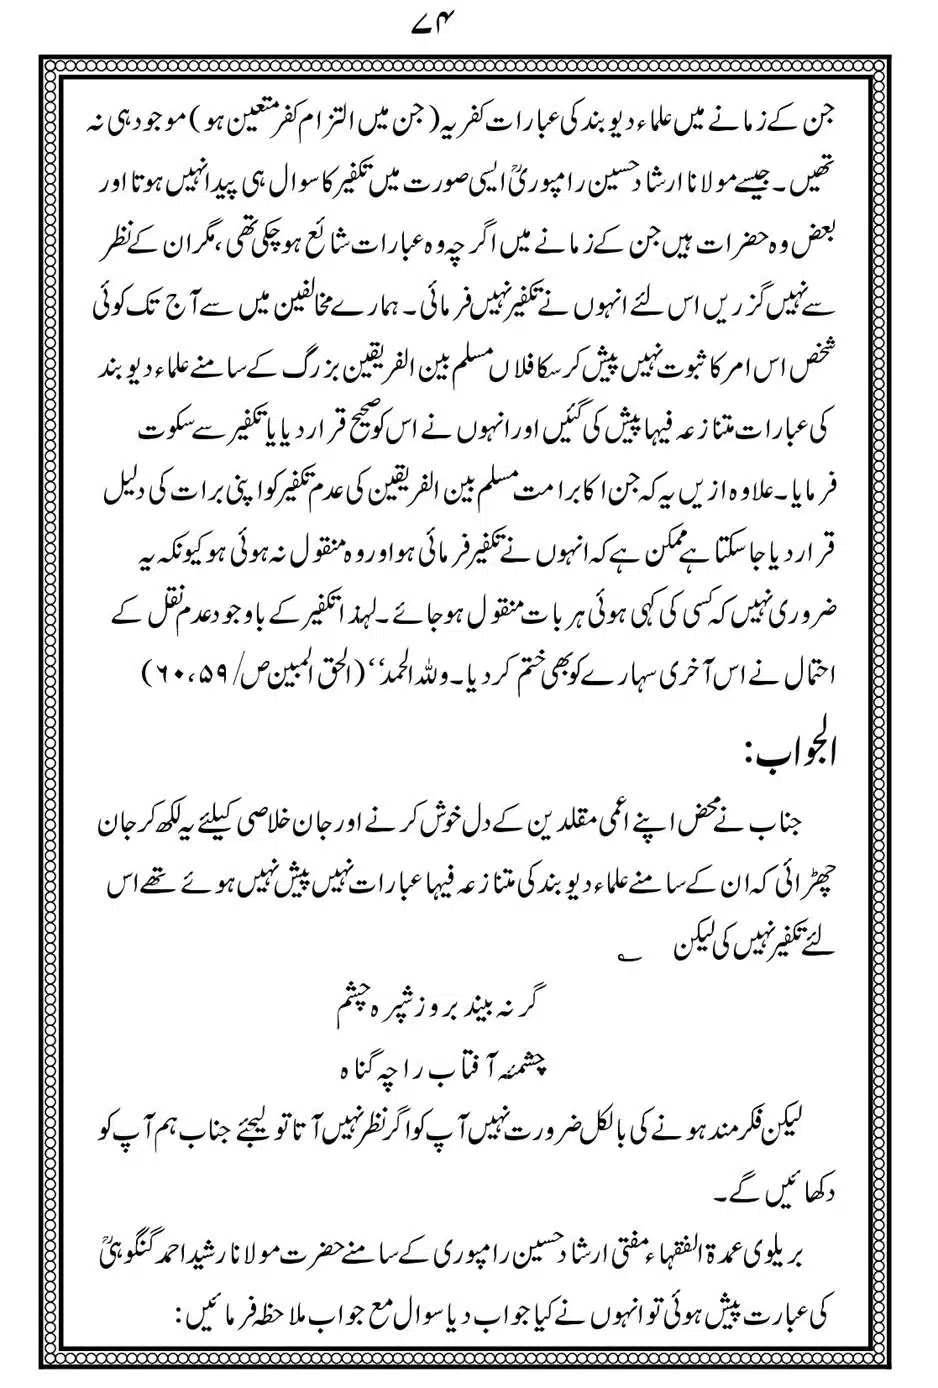 ۷۴
جن کے زمانے میں علماء دیوبند کی عبارات کفریہ (جن میں التزام کفر متعین ہو) موجود ہی نہ
تھیں۔ جیسے مولانا ارشاد حسین رامپوریؒ ایسی صورت میں تکفیر کا سوال ہی پیدا نہیں ہوتا اور
بعض وہ حضرات ہیں جن کے زمانے میں اگرچہ وہ عبارات شائع ہوچکی تھی، مگر ان کے نظر
سے نہیں گزریں اس لئے انہوں نے تکفیر نہیں فرمائی۔ ہمارے مخالفین میں سے آج تک کوئی
شخص اس امر کا ثبوت نہیں پیش کرسکا فلاں مسلم بین الفریقین بزرگ کے سامنے علماء دیوبند
کی عبارات متنازعہ فیہا پیش کی گئیں اور انہوں نے اس کو صحیح قرار دیا یا تکفیر سے سکوت
فرمایا۔ علاوہ ازیں یہ کہ جن اکابر امت مسلم بین الفریقین کی عدم تکفیر کو اپنی برات کی دلیل
قرار دیا جاسکتا ہے ممکن ہے کہ انہوں نے تکفیر فرمائی ہو اور وہ منقول نہ ہوئی ہو کیونکہ یہ
ضروری نہیں کہ کسی کی کہی ہوئی ہر بات منقول ہوجائے۔ لہذا تکفیر کے باوجود عدم نقل کے
احتمال نے اس آخری سہارے کو بھی ختم کردیا۔ وللہ الحمد‘‘ (الحق المبین ص/۵۹،۶۰)
الجواب:
جناب نے محض اپنے اعمی مقلدین کے دل خوش کرنے اور جان خلاصی کیلئے یہ لکھ کر جان
چھڑائی کہ ان کے سامنے علماء دیوبند کی متنازعہ فیہا عبارات نہیں پیش نہیں ہوئے تھے اس
لئے تکفیر نہیں کی لیکن ؎
گر نہ بیند بروز شپرہ چشم
چشمئہ آفتاب را چہ گناہ
لیکن فکر مند ہونے کی بالکل ضرورت نہیں آپ کو اگر نظر نہیں آتا تو لیجئے جناب ہم آپ کو
دکھائیں گے۔
بریلوی عمدۃ الفقہاء مفتی ارشاد حسین رامپوری کے سامنے حضرت مولانا رشید احمد گنگوہیؒ
کی عبارت پیش ہوئی تو انہوں نے کیا جواب دیا سوال مع جواب ملاحظہ فرمائیں: